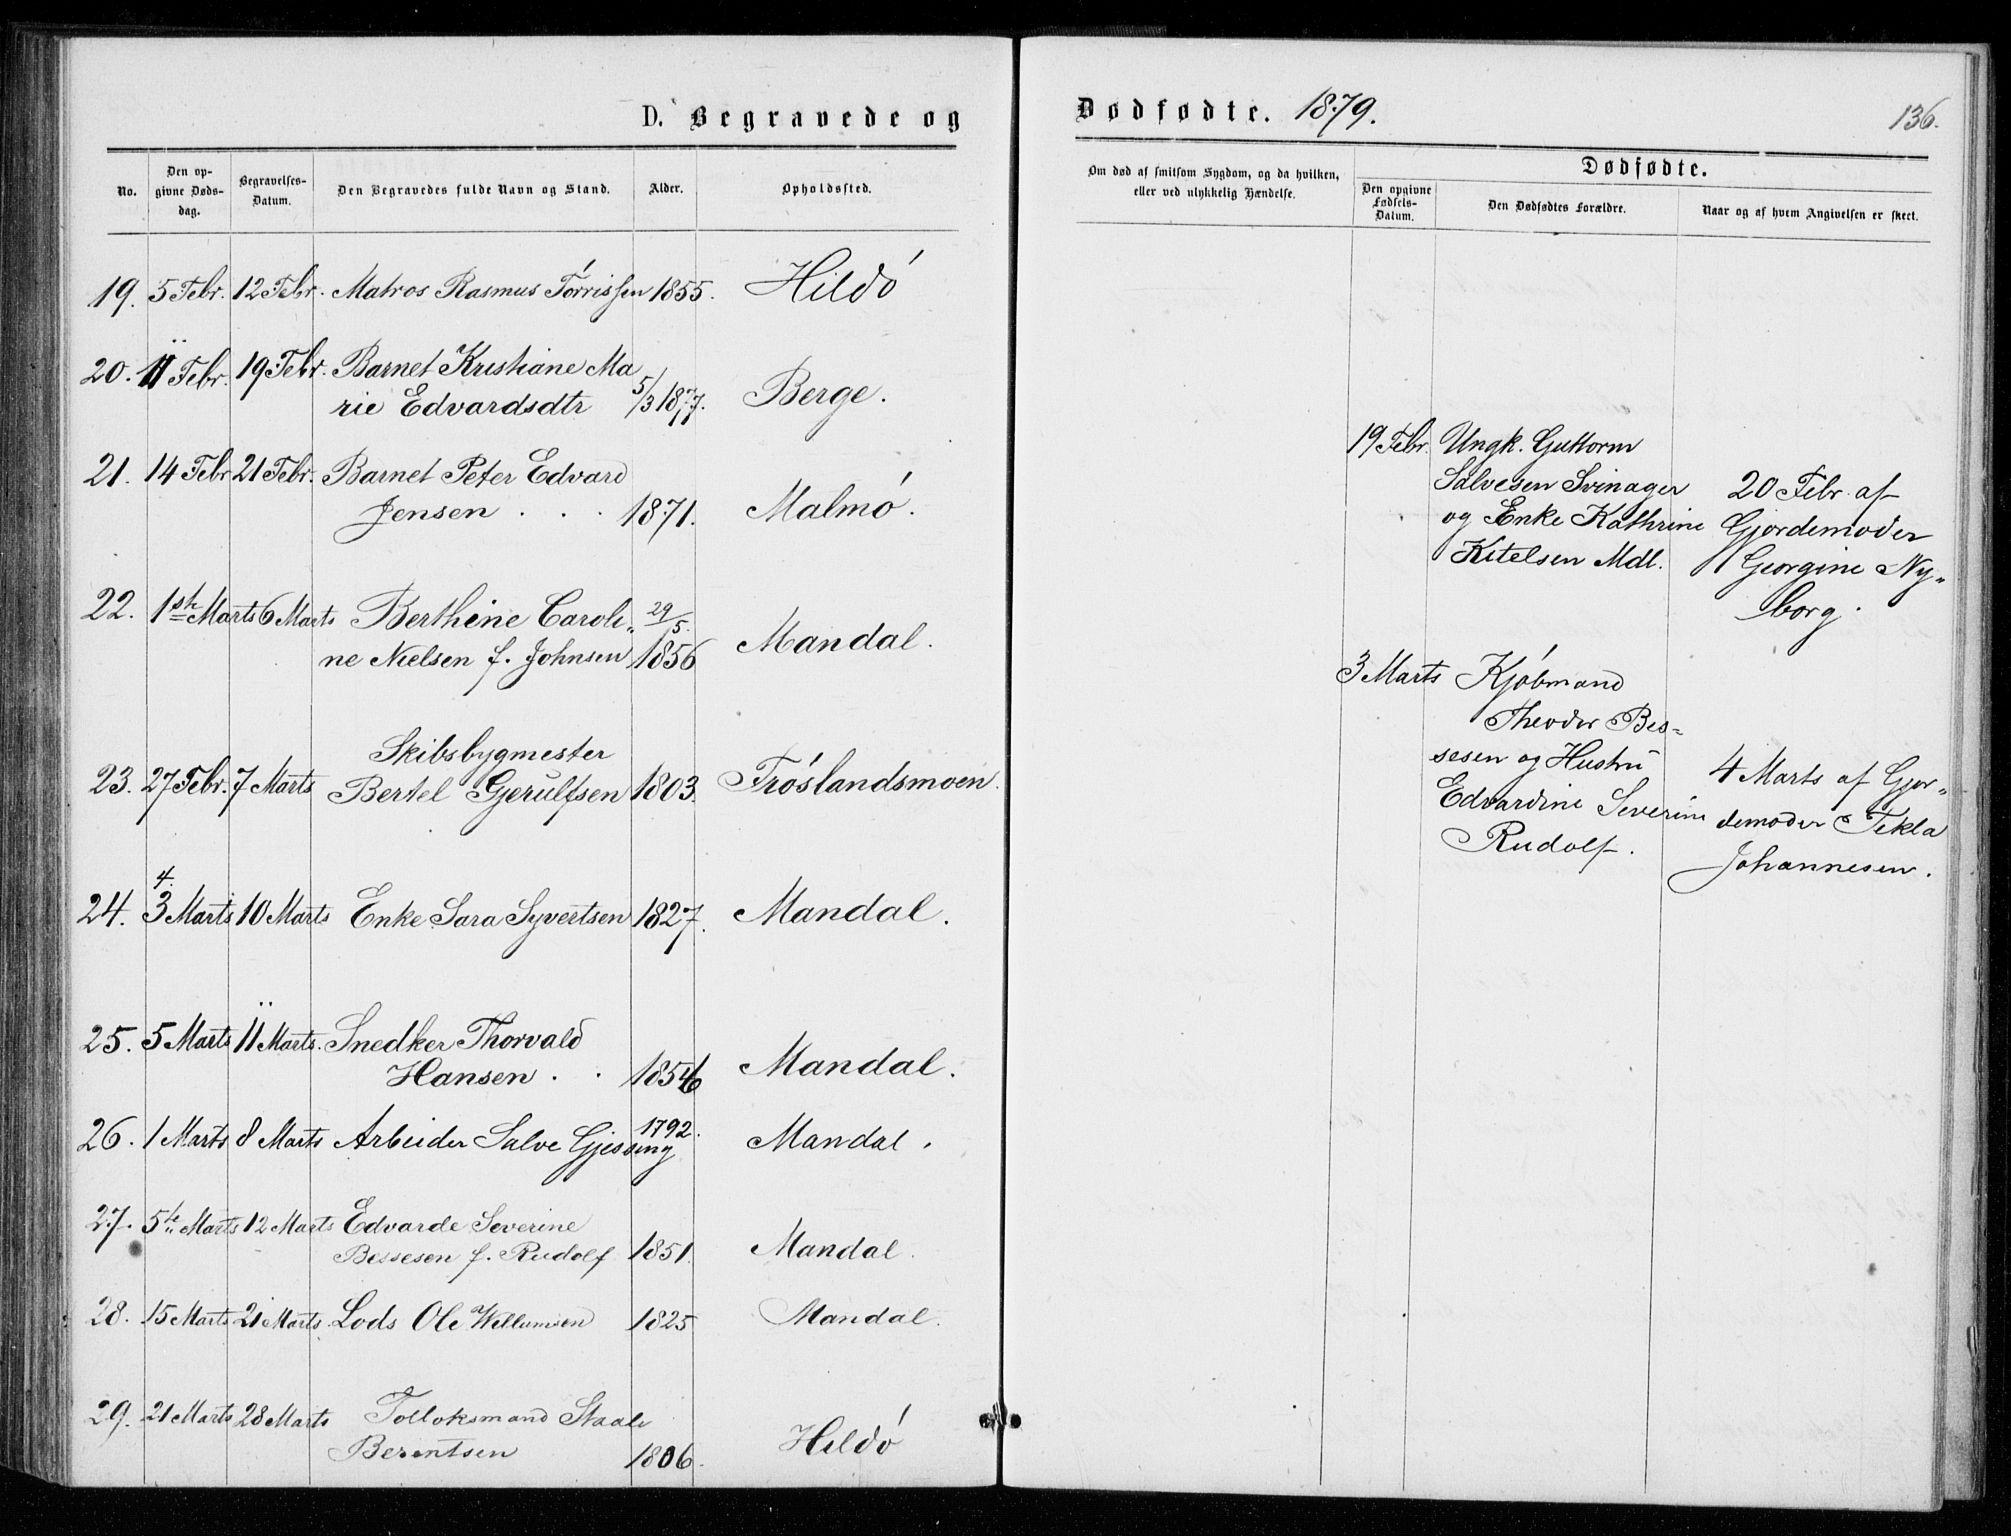 D. Begravede og
No.
Den op-
givne Døds-
dag.
Begravelses-
Datum.
Den Begravedes fulde Navn og Stand.
Alder.
Opholdssted.
19. 5 Febr. 12 Febr. Matros Rasmus Tørrissen 1855. Hildø
20. 11 Febr. 19 Febr. Barnet Kristiane Ma
rie Edvardsdtr 5/3 1877. Berge.
21. 14 Febr 21 Febr. Barnet Peter Edvard
Jensen . . . 1871. Malmø.
22. 1ste Marts 6 Marts Berthine Caroli„ 29/5.
ne Nielsen f. Johnsen 1856 Mandal.
Skibsbygmester
23. 27 Febr. 7 Marts Bertel Gjerulfsen 1803. Frøslandsmoen.
4.
24. 3 Marts 10 Marts Enke Sara Syvertsen 1827. Mandal.
25. 5 Marts 11 Marts. Snedker Thorvald
Hansen . . 1856 Mandal.
26. 1 Marts 8 Marts Arbeider Salve Gjessing 1792. Mandal.
27. 5te Marts 12 Marts Edvarde Severine
Bessesen f. Rudolf 1851. Mandal.
28. 15 Marts 21 Marts. Lods Ole Willumsen 1825 Mandal.
29. 21 Marts 28 Marts Folloksmand Staale
Berentsen 1806. Hildø
Dødfødte. 1879.
136.
Om død af smitsom Sygdom, og da hvilken,
eller ved ulykkelig Hændelse.
Dødfødte.
Den opgivne
Fødsels-
Datum.
Den Dødfødtes Forældre.
Naar og af hvem Angivelsen er skeet.
19 Febr. Ungk. Guttorm
Salvesen Svinager
og Enke Kathrine
Kitelsen Mdl.
20 Febr. af
Gjordemoder
Georgine Ny„
borg.
3 Marts Kjøbmand
Theodor Bes-
sesen og Hustru
Edvardine Severine
Rudolf.
4 Marts af Gjor„
demoder Tekla
Johannesen.